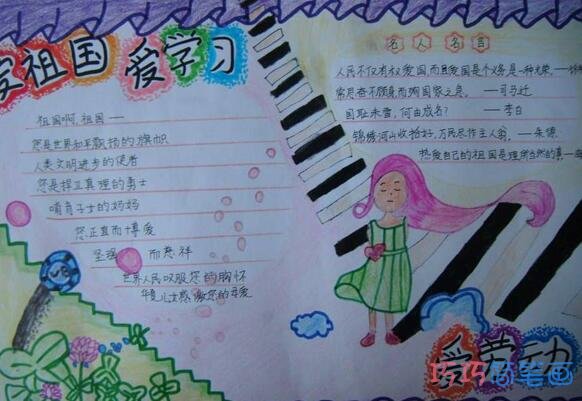 爱祖国 爱学习
祖国啊,祖国——
您是世界和平飘扬的旗帜
人类文明进步的使者
您是捍卫真理的勇士
哺育子士的妈妈
您正直而博爱
坚强 而慈祥
世界人民叹服您的胸怀
华夏儿女感激您的母爱
名人名言
人民不仅有权爱国,而且爱国是个义务,是一种光荣。——
常思奋不顾身而殉国家之急。——司马迁
国耻未雪,何由成名?——李白
锦绣河山收拾好,万民尽作主人翁。——朱德
热爱自己的祖国是理所当然的事——
爱劳动
巧巧简笔画